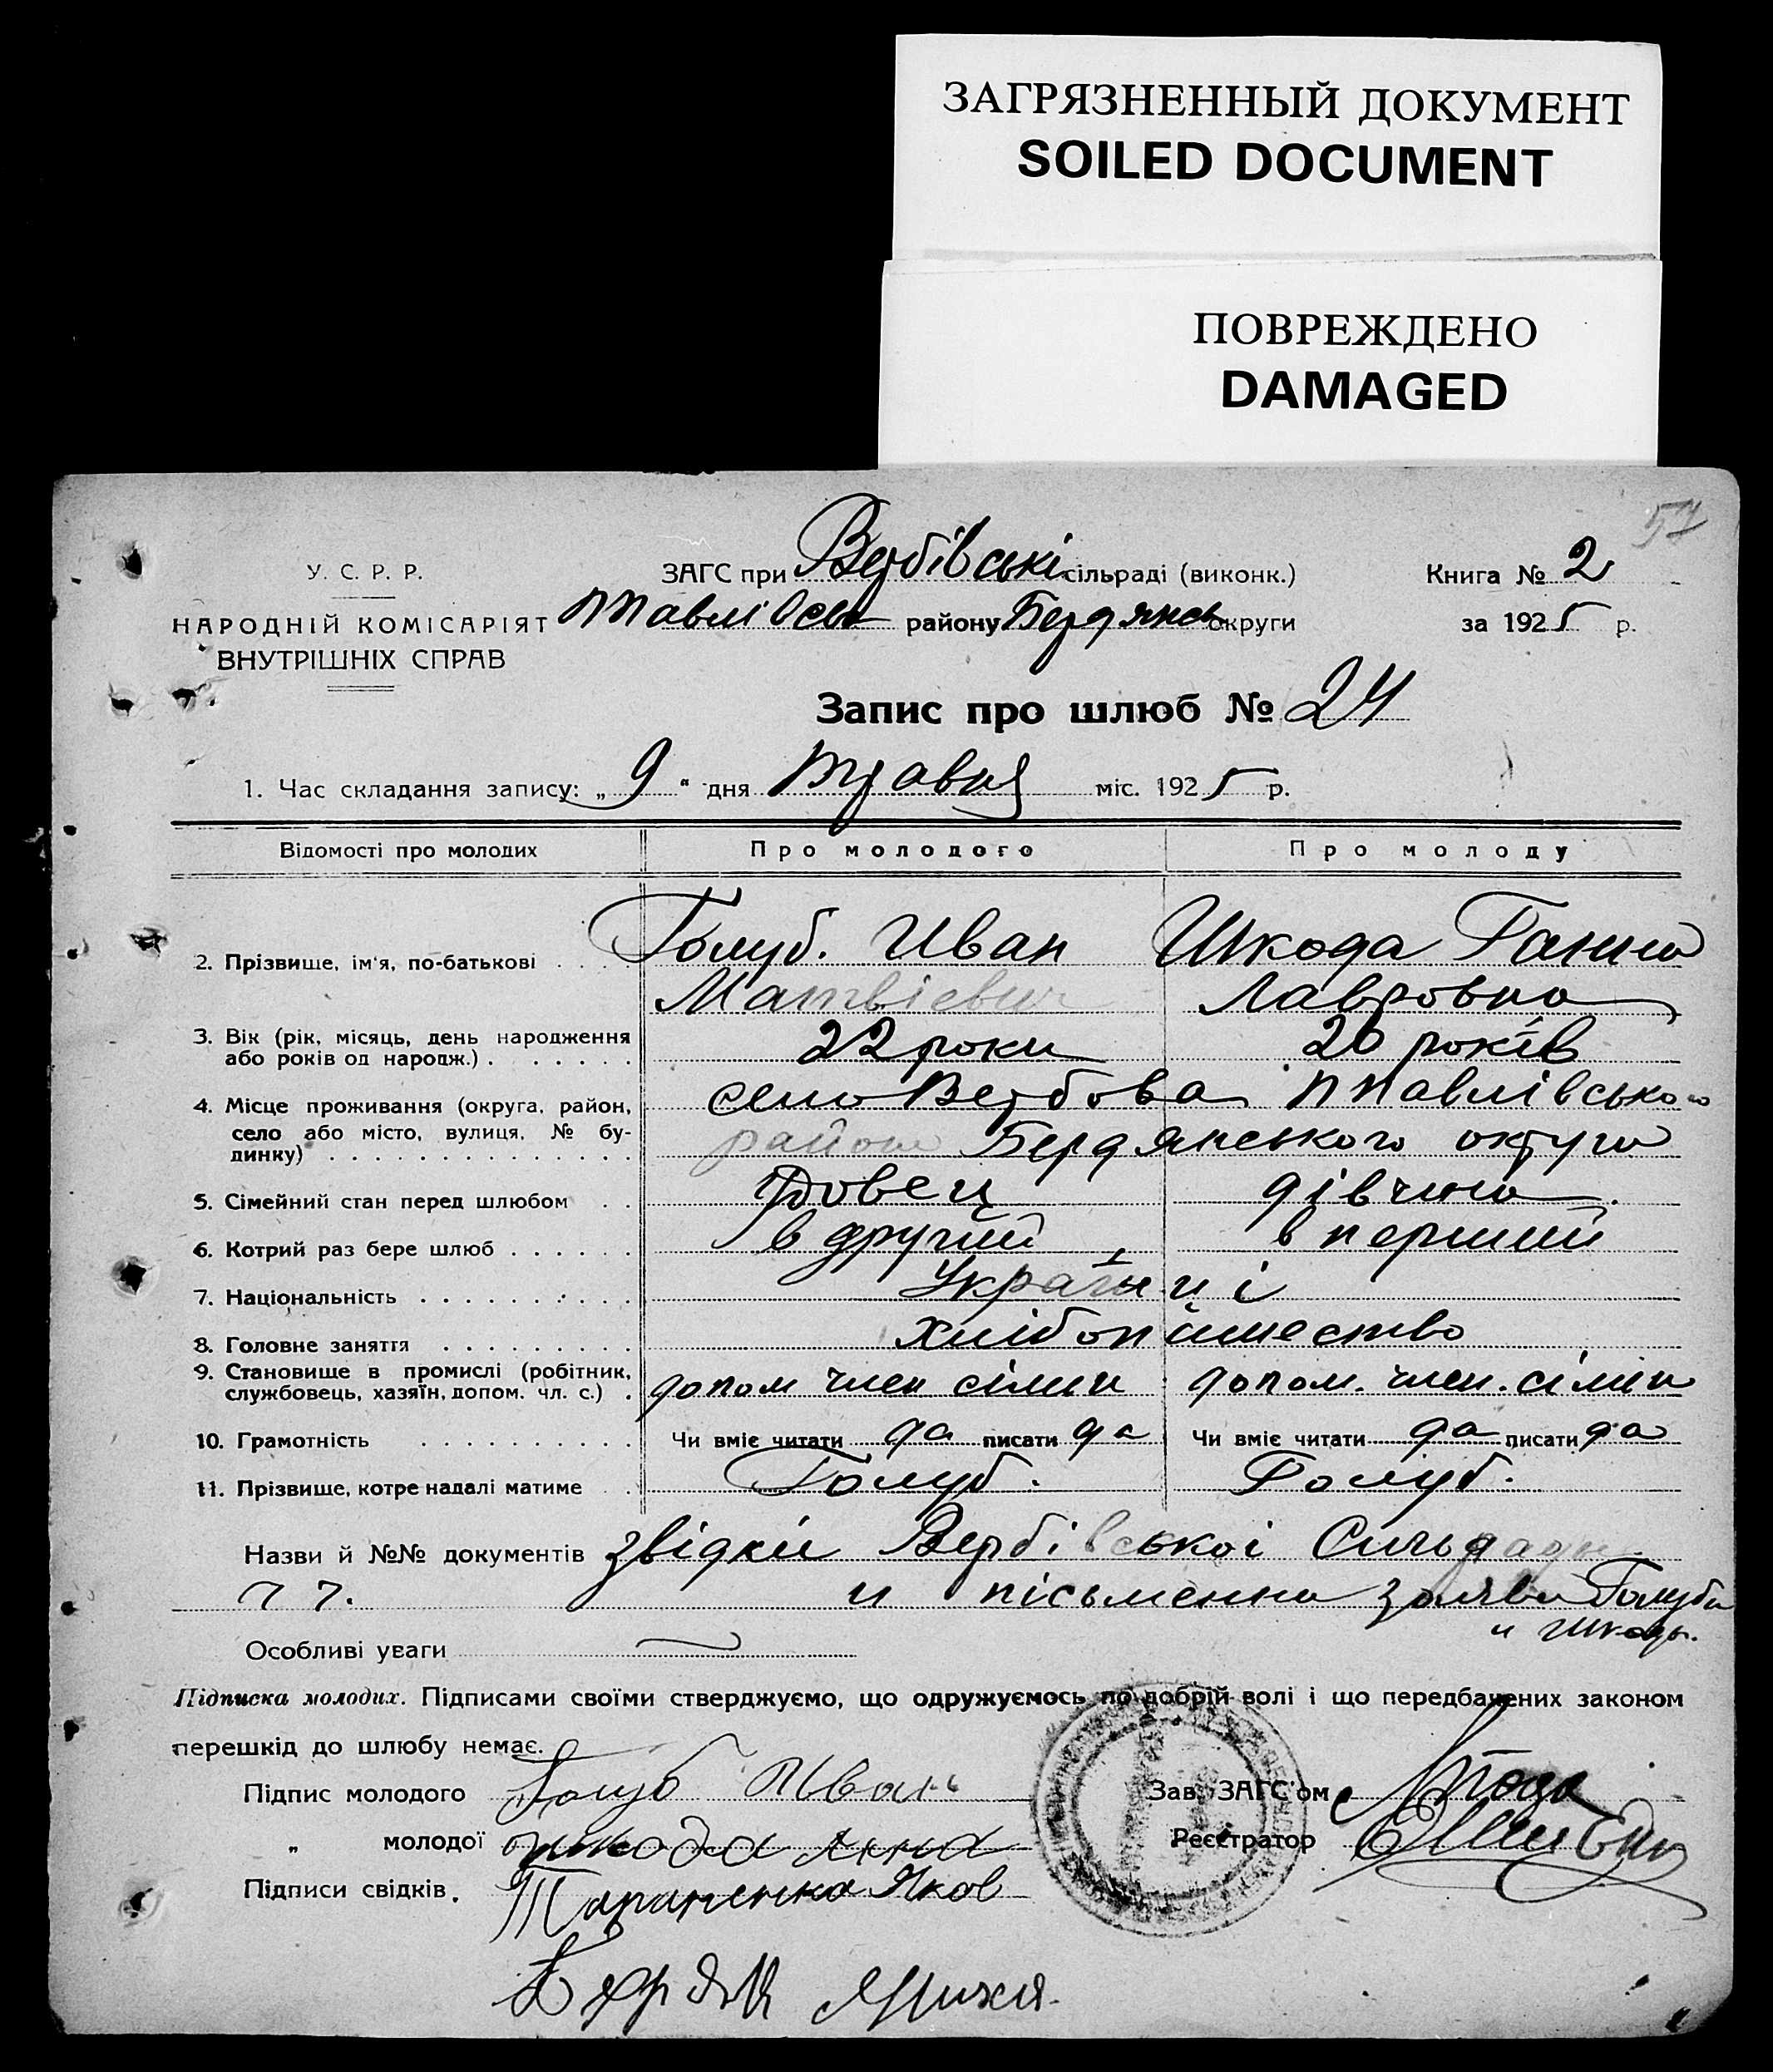 ЗАГРЯЗНЕННЫЙ ДОКУМЕНТ
SOILED DOCUMENT
ПОВРЕЖДЕНО
DAMAGED
57
У. С. Р. Р.
НАРОДНІЙ КОМІСАРІЯТ
ВНУТРІШНІХ СПРАВ
ЗАГС при Вербівські сільраді (виконк.)
району Бердянськ округи
Книга № 2
за 1925 р.
Запис про шлюб № 24
1. Час складання запису: „ 9 “ дня травня міс. 1925 р.
Відомості про молодих Про молодого Про молоду
2. Прізвище, ім'я, по-батькові Голуб. Иван Шкода Ганна
Матвієвич Лавровна
3. Вік (рік, місяць, день народження
або років од народж.) 22 роки 20 років
4. Місце проживання (округа, район, село Вербова Павлівського
село або місто, вулиця, № бу-
динку) района Бердянського округа
5. Сімейний стан перед шлюбом Вдовец дівчина
6. Котрий раз бере шлюб в другий в перший
7. Національність Українці
8. Головне заняття хлібопашество
9. Становище в промислі (робітник,
службовець, хазяїн, допом. чл. с.) допом член сімии допом. член. сімии
10. Грамотність Чи вміє читати да писати да Чи вміє читати да писати да
11. Прізвище, котре надалі матиме Голуб. Голуб.
Назви й №№ документів звідки Вербівської Сильради
77. и пісьменна заява Голуба
и Шкоды.
Особливі уваги
Підписка молодих. Підписами своїми стверджуємо, що одружуємось по добрій волі і що передбачених законом
перешкід до шлюбу немає.
Підпис молодого Голуб Иван
Зав. ЗАГС'ом
„ молодої Шкода Анна
Реєстратор
Підписи свідків. Тараненка Яков